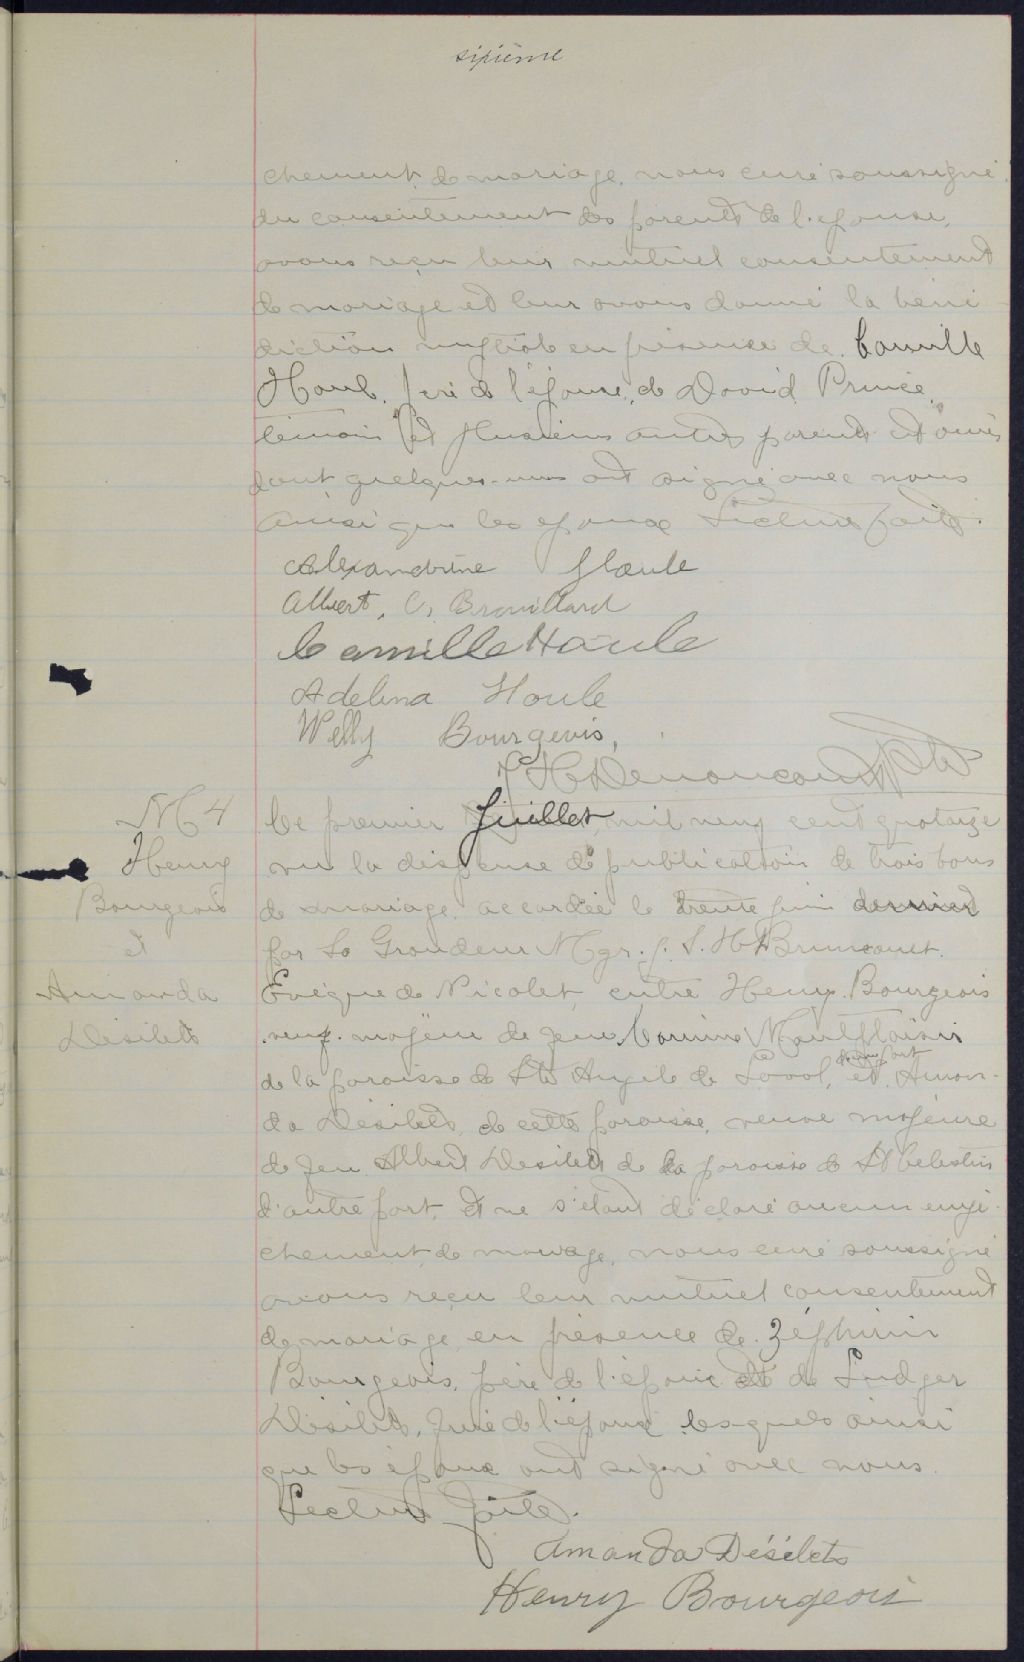 sixième
chement de mariage, nous curé soussigné,
du consentement des parents de l'epouse,
avons reçu leur mutuel consentement
de mariage et leur avons donné la béné
diction nuptiale en présence de Camille
Houle, père de l'épouse, de David Prince,
témoin et plusieurs autres parents et amis
dont quelques-uns ont signé avec nous
ainsi que les epoux Lecture faite.
Alexandrine Houle
Albert, C, Brouillard
Camille Houle
Adelina Houle
Welly Bourgeois,
Denoncourt Ptre
M 4
Henry
Bourgeois
et
Amanda
Désilets
Le premier Juillet, mil neuf cent quatorze
vu la dispense de publication de trois bans
de mariage accordée le trente juin dernier
par Sa Grandeur Mgr. J. S. H. Brunault.
Evêque de Nicolet, entre Henry Bourgeois
veuf majeur de feue Corinne Montplaisir
de la paroisse de Ste Angèle de Laval, d'une part et Aman-
da Désilets, de cette paroisse, veuve majeure
de feu Albert Désilets de la paroisse de St Celestin
d'autre part, et ne s'étant déclaré aucun empê-
chement de mariage, nous curé soussigné
avons reçu leur mutuel consentement
de mariage en présence de Zéphirin
Bourgeois, père de l'époux et de Ludger
Désilets, père de l'épouse lesquels ainsi
que les époux ont signé avec nous.
Lecture faite.
Amanda Désilets
Henry Bourgeois